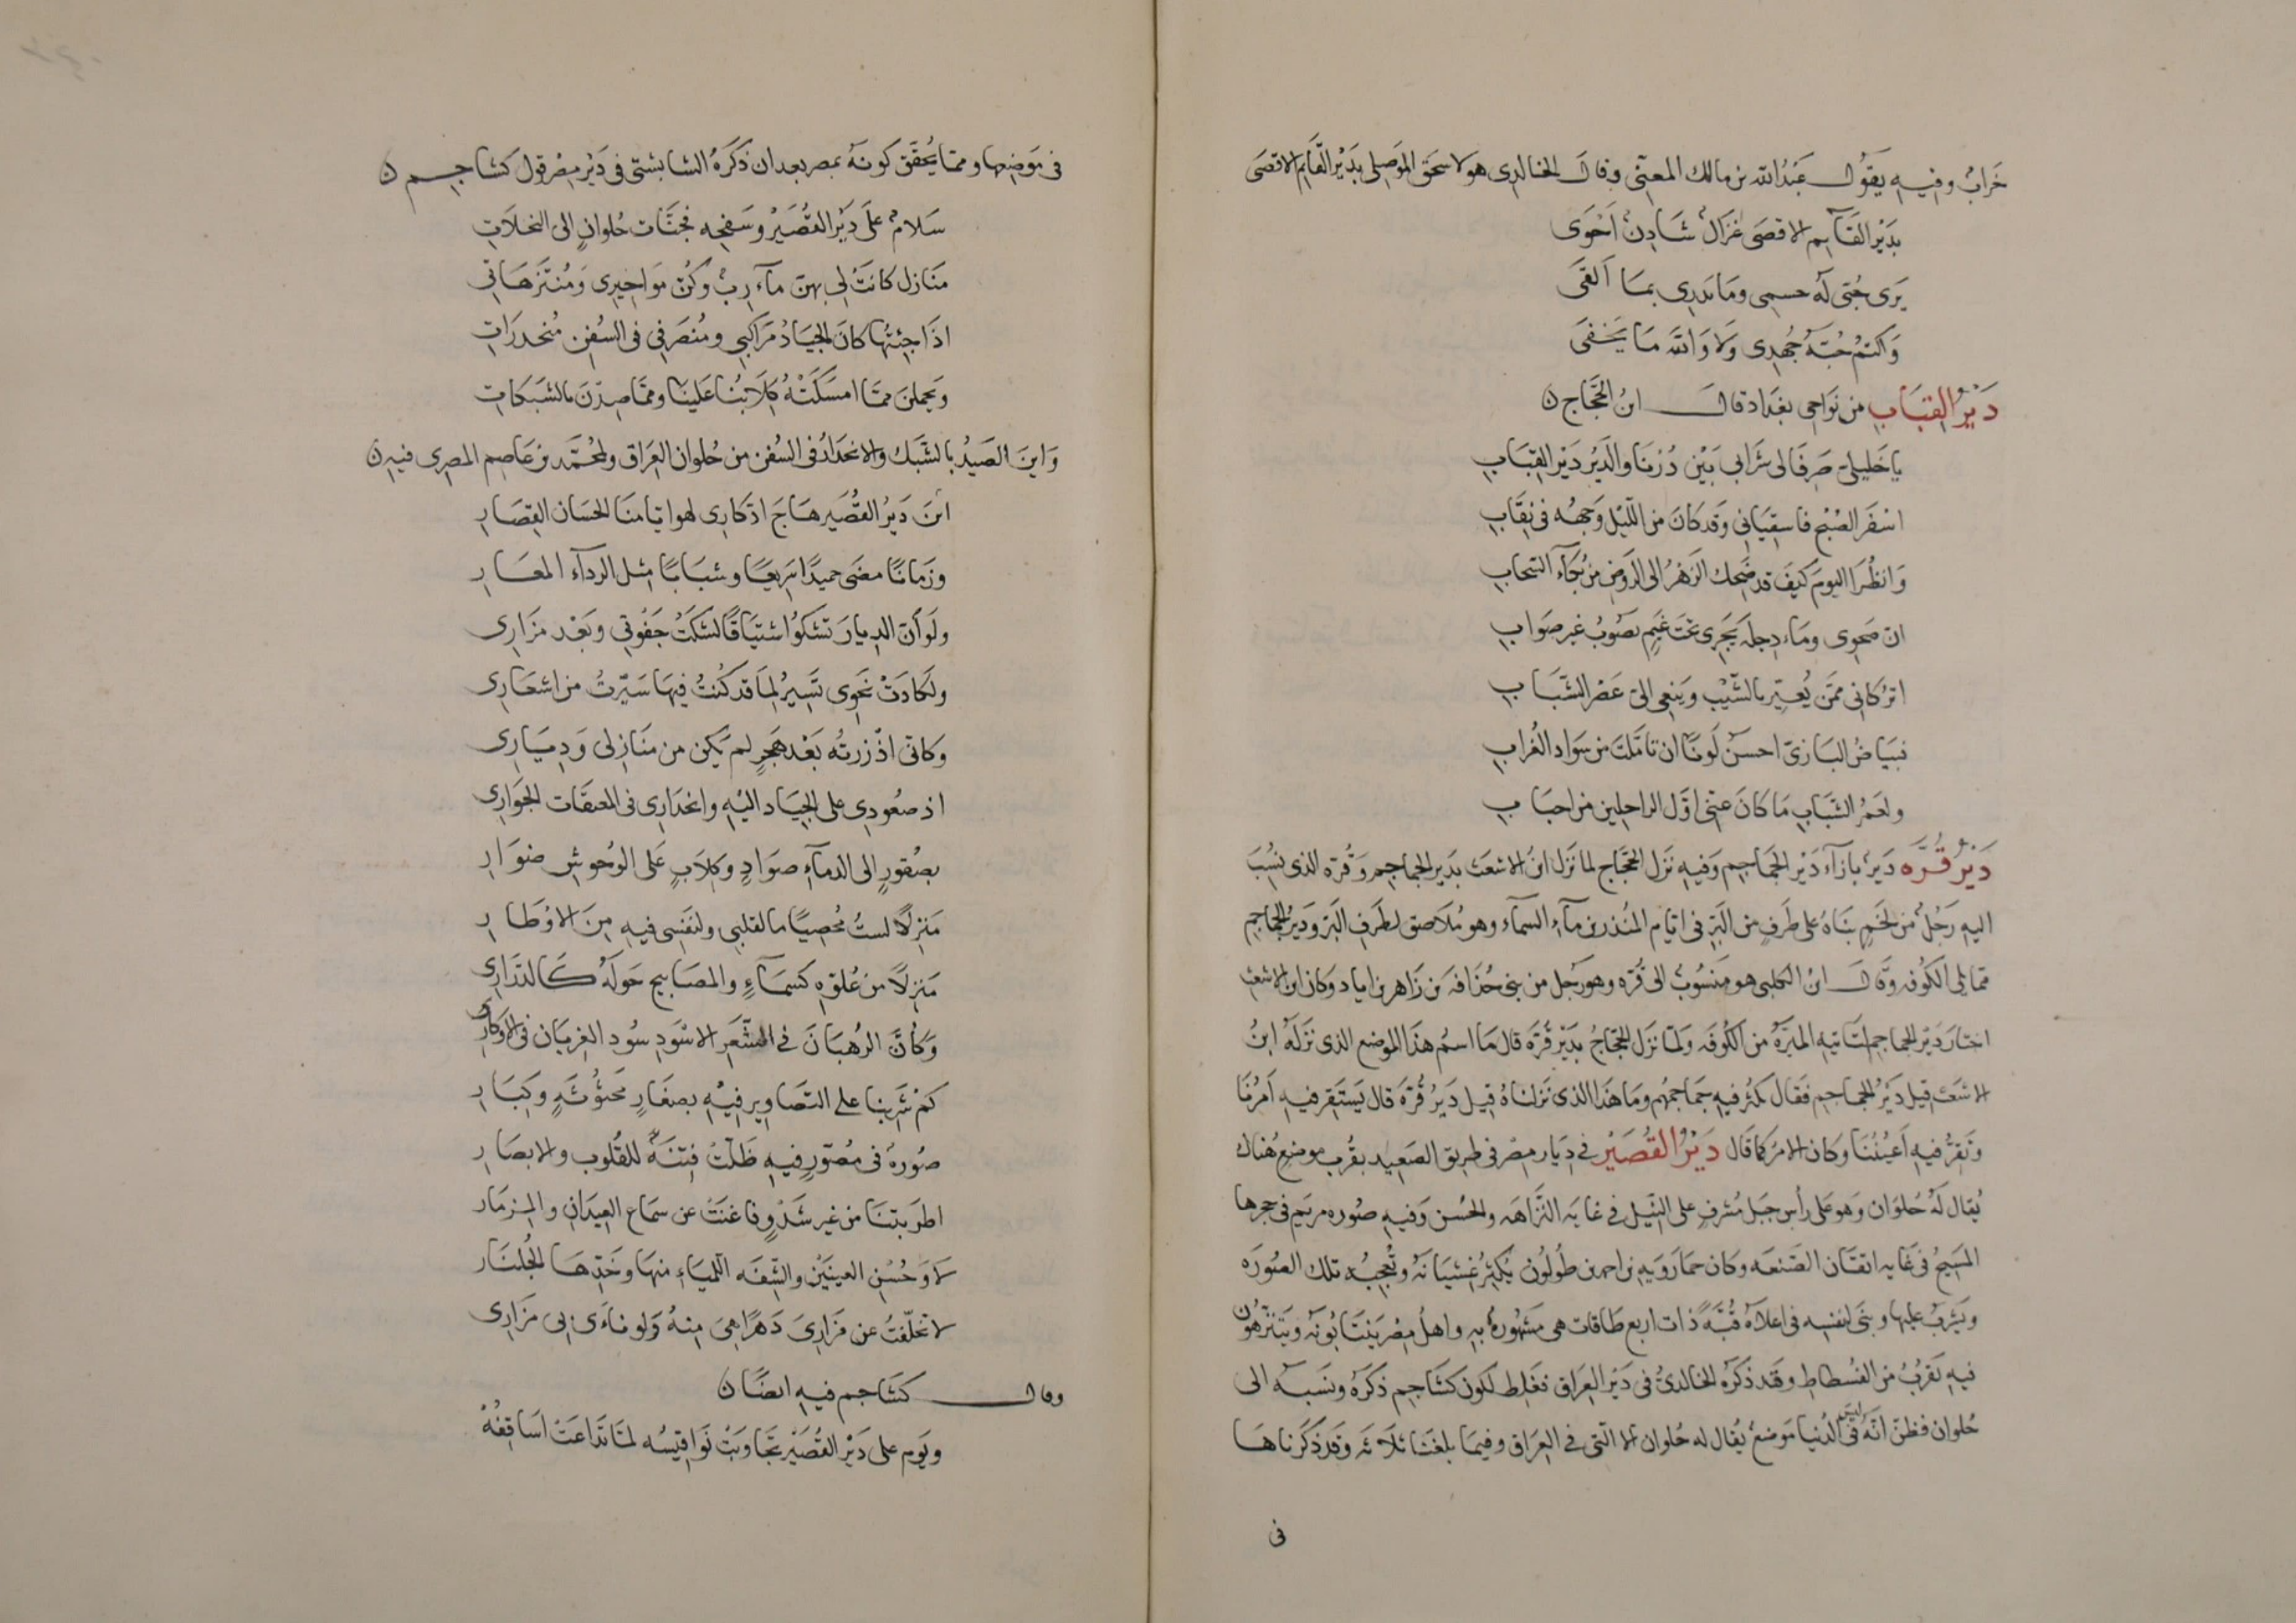 خَرابُ وفيه يقول عبد الله بن مالك المعنى وقال الخالدى هو لاسحق الموصلى بدَيْر القَايم الاقصَى
بدَيْر القَايم الاقصَى غزال شادن اَحْوَى
يَرَى حُبّى لَه جسمى ومَا يدرى بما اَلقَى
وَاكتمْ حُبّهُ جُهدى وَلَا وَالله مَا يَخفَى
دَيْرُ القِبَاب من نَوَاحى بغداد قال ابن الحَجَّاج ن
يا خَليلىّ صَرِفَا لى شَرَابى بَيْن دُرْنَا والدَيْر دَيْر القِبَاب
اسْفَر الصُبْح فاسقيَانى وَقد كانَ من اللّيْل وَجهُه فى نِقَاب
وَانظُرَا اليومَ كيفَ قد ضَحِك الزَهْرُ الى الرَوض من بُكَاء السَحاب
ان صَحوى ومَاء دِجلَة يَجرى تحتَ غَيم يصُوبُ غير صَوَاب
اتركَانى ممّن يُعيّر بالشَيْب ويَنعى الىّ عَصْر الشَبَاب
فبَيَاضُ البَازىّ احسَنُ لَونًا ان تامّلتَ من سَوَاد الغُراب
ولعَمْرُ الشَبَاب مَا كانَ عنّى اوّل الراحلين من احبَاب
دَيْرُ قُرَّه دَير بازآء دَيْر الجمَاجم وَفيه نزَل الحَجَّاج لما نزَل ابن الاشعَث بدَير الجماجم وَقُرّه الذى نسُبَ
اليه رَجُل من لخم بَناهُ على طَرَفٍ من البَرّ فى ايّام المُنذر بن مآء السمآء وهو مُلَاصق لطَرَف البَرّ ودَيْر الجماجم
ممّا يلى الكوُفه وقَال ابن الكلبى هو مَنسُوبُ الى قُرّه وهو رَجُل من بنى حُذَافَه بن زَاهر بن اياد وكان ابن الاشعَث
اختار دَيْر الجماجم لتاتيه الميَرةُ من الكُوفَه ولمّا نزَل الحَجّاجُ بدَيْر قُرّه قال مَا اسمُ هَذا الموضع الذى نزلَهُ ابنُ
الاشعَث قيل دَيْرُ الجماجم فَقال يكثر فيه جَمَاجمُهم ومَا هَذا الذى نَزلناهُ قيل دَيْرُ قُرّةَ قال يَستَقر فيه اَمرُنا
وَتَقرّ فيه اَعيُنُنَا وكان الامرُ كما قَال دَيْرُ القُصَيْر فى دِيَار مِصْر فى طريق الصَعيد بقُرب موضع هُناك
يُقال لَهُ حُلوَان وَهو على رأس جبَل مُشرفٍ على النّيل فى غايه النَّزاهَه والحُسن وَفيه صُوره مريَم فى حجرها
المسَيحُ فى غَايه اتقَان الصَنعَه وكان خمارَوَيهِ بن احمد بن طُولُون يُكثرُ غِشيَانهُ وتُعجبُه تلك الصُورَه
ويَشربُ عليها وبنَى لنفسِه فى اعلاهُ قُبّةً ذات اربع طَاقات هى مَشهُورةُ به واهلُ مِصْر يَنتَابُونَه ويَتنزهُون
فيه لقُربُ من الفُسطاطِ وقد ذكرَه الخالدىُّ فى دَيْر العرَاق فغَلط لكون كشَاجم ذكرَهُ ونسَبَه الى
حُلوان فظنّ انّهُ ليسَ فى الدُنيا مَوضعُ يُقال له حُلوان الا التى فى العرَاق وفيمَا بلغنَا ثلاثه وَقد ذكرناهَا
فى
فى مَوَضعها وممّا يُحقّق كونهُ بمصر بعد ان ذكرَهُ الشابشتى فى دَيْر مِصْر قول كشاجم ن
سَلامُ على دَيْر القُصَيْر وسَفحِه فجنَّات حُلوانٍ الى النخلاتِ
مَنازل كانَتْ لى بهنّ مآءرِبُ وكُنّ مَواخيرى ومُنتَزهَاتى
اذَا جئتُها كانَ الجيَادُ مَرَاكبى ومُنصَرفى فى السُفن مُنحدرَات
وَيحملنَ ممّا امسَكَتْهُ كِلَابُنا عَلينا وممّا صِدْنَ بالشبَكات
وَاينَ الصَيدُ بالشَبَك والانحدَارُ فى السُفن من حُلوان العرَاق ولمُحمّد بن عَاصم المصرى فيه ن
انَ دَيْرُ القُصَير هَاجَ اذّكارى لهو ايامنَا الحسَان القِصَار
وزَمانًا مضَى حميدًا سَريعًا وشبَابًا مثل الردآء المعَار
ولوَ أنّ الديارَ تشكوُ اشتيَاقًا لشكَتْ جَفوَتى وبَعْد مزَارى
ولكَادَتْ نَحوى تَسيرُ لمَا قد كُنتُ فيهَا سَيّرتُ من اشعَارى
وكانى اذْ زرتُه بَعْد هَجرٍ لم يَكن من منَازلى وَدِيَارى
اذ صعُودى على الجيَاد اليْه وانحدَارى فى المعنقَات الجوَارى
بصُقورٍ الى الدمآءِ صوَادٍ وكلَابٍ عَلى الوُحُوش ضوَار
مَنزلًا لستُ مُحصيًا ما لقلبى ولنَفسى فيه مِنَ الاوْطار
مَنزلًا من عُلوّه كسمَاءٍ والمصَابيح حَولَهُ كالدَرَارى
وَكأنَّ الرُهبَانَ فى الشَعَر الاسْوَدِ سُود الغربَان فى الاوكارى
كمْ شَرِبنا على التصَاوير فيه بصغَارٍ مَحثُوثَةٍ وَكبَار
صُورَةُ فى مُصَوّرٍ فيه ظَلّتْ فِتنَةً للقُلوب والابصَار
اطرَبتنَا من غير شَدْوٍ فاغنَتْ عن سمَاع العِيدَانِ والمزمَار
لَا وَحُسْن العينَيْن والشِفَه اللميَاءِ منهَا وخَدّهَا الجُلنَار
لا تخلّفتُ عن مَزارىَ دَهرًا هىَ مِنهُ ولو ناءَى بى مزَارى
وقال كشَاجم فيه ايضًا ن
ويَوم على دَيْر القُصَيْر تجَاوبَتْ نَوَاقيسُه لمَّا تدَاعَتْ اسَاقفُهْ